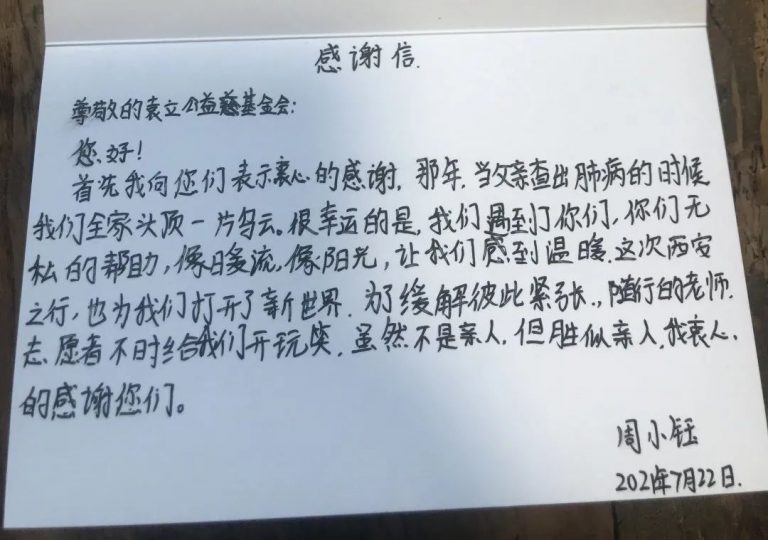 感谢信.
尊敬的袁立公益慈基金会:
您、好!
首先我向您们表示衷心的感谢. 那年. 当父亲查出肺病的时候
我们全家头顶一片乌云. 很幸运的是, 我们遇到了你们, 你们无
私的帮助, 像暖流. 像阳光, 让我们感到温暖. 这次西安
之行, 也为我们打开了新世界. 为了缓解彼此紧张., 随行的老师.
志愿者不时给我们开玩笑. 虽然不是亲人. 但胜似亲人. 我衷心.
的感谢您们。
周小钰
2021年7月22日.